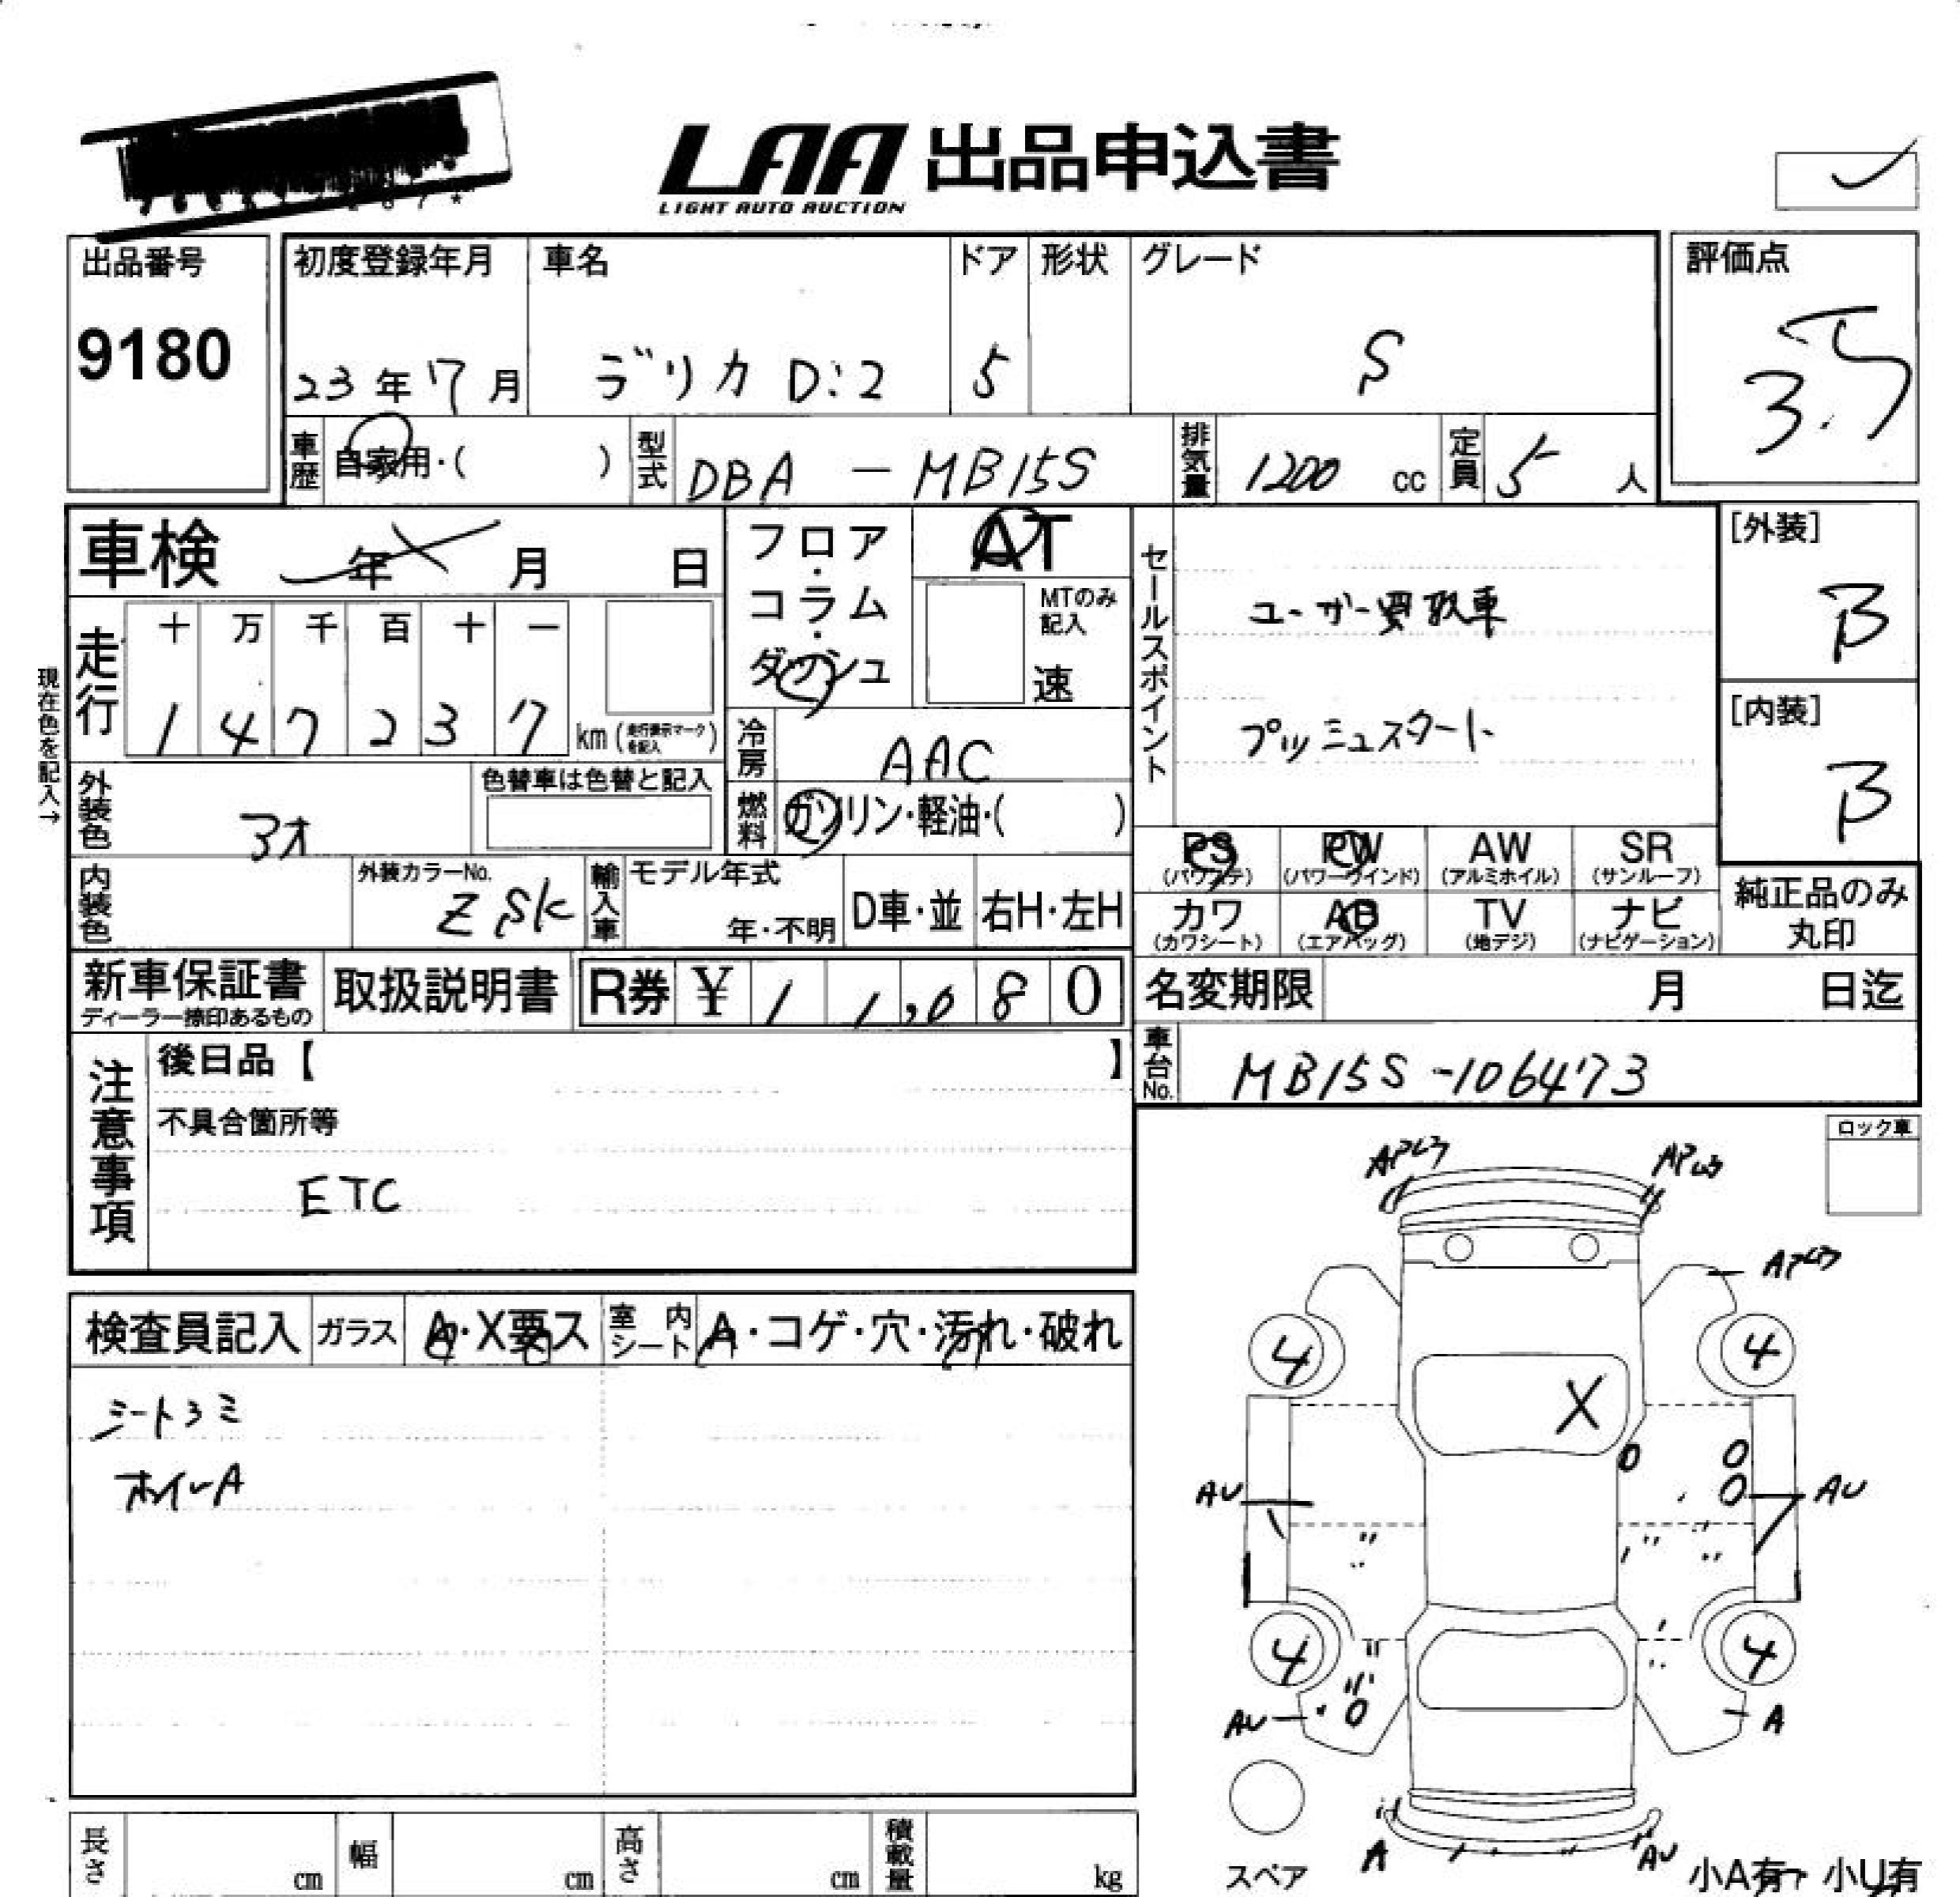 LAA 出品申込書
LIGHT AUTO AUCTION
出品番号
9180
初度登録年月
23年7月
車名
デリカ D:2
ドア
5
形状
グレード
S
評価点
3.5
車歴 自家用・( )
型式 DBA - MB15S
排気量 1200 cc
定員 5 人
車検 年 月 日
フロア・コラム・ダッシュ
AT
MTのみ記入
速
セールスポイント
ユーザー買取車
プッシュスタート
[外装]
B
[内装]
B
現在色を記入→
走行
十 万 千 百 十 一
1 4 7 2 3 7 km (走行表示マークを記入)
冷房 AAC
燃料 ガソリン・軽油・( )
外装色
色替車は色替と記入
内装色
外装カラーNo.
ZSK
輸入車
モデル年式
年・不明
D車・並
右H・左H
PS (パワステ)
PW (パワーウインド)
AW (アルミホイル)
SR (サンルーフ)
カワ (カワシート)
AB (エアバッグ)
TV (地デジ)
ナビ (ナビゲーション)
純正品のみ
丸印
新車保証書
ディーラー捺印あるもの
取扱説明書
R券 ¥ 1 1,0 8 0
名変期限 月 日迄
車台No. MB15S-106473
注意事項
後日品【 】
不具合箇所等
ETC
ロック車
検査員記入
ガラス A・X要ス
室内シート A・コゲ・穴・汚れ・破れ
シートシミ
ホイルA
X
4 4
AU AU
4 4
AU A
A AU
スペア
小A有 小U有
長さ cm
幅 cm
高さ cm
積載量 kg